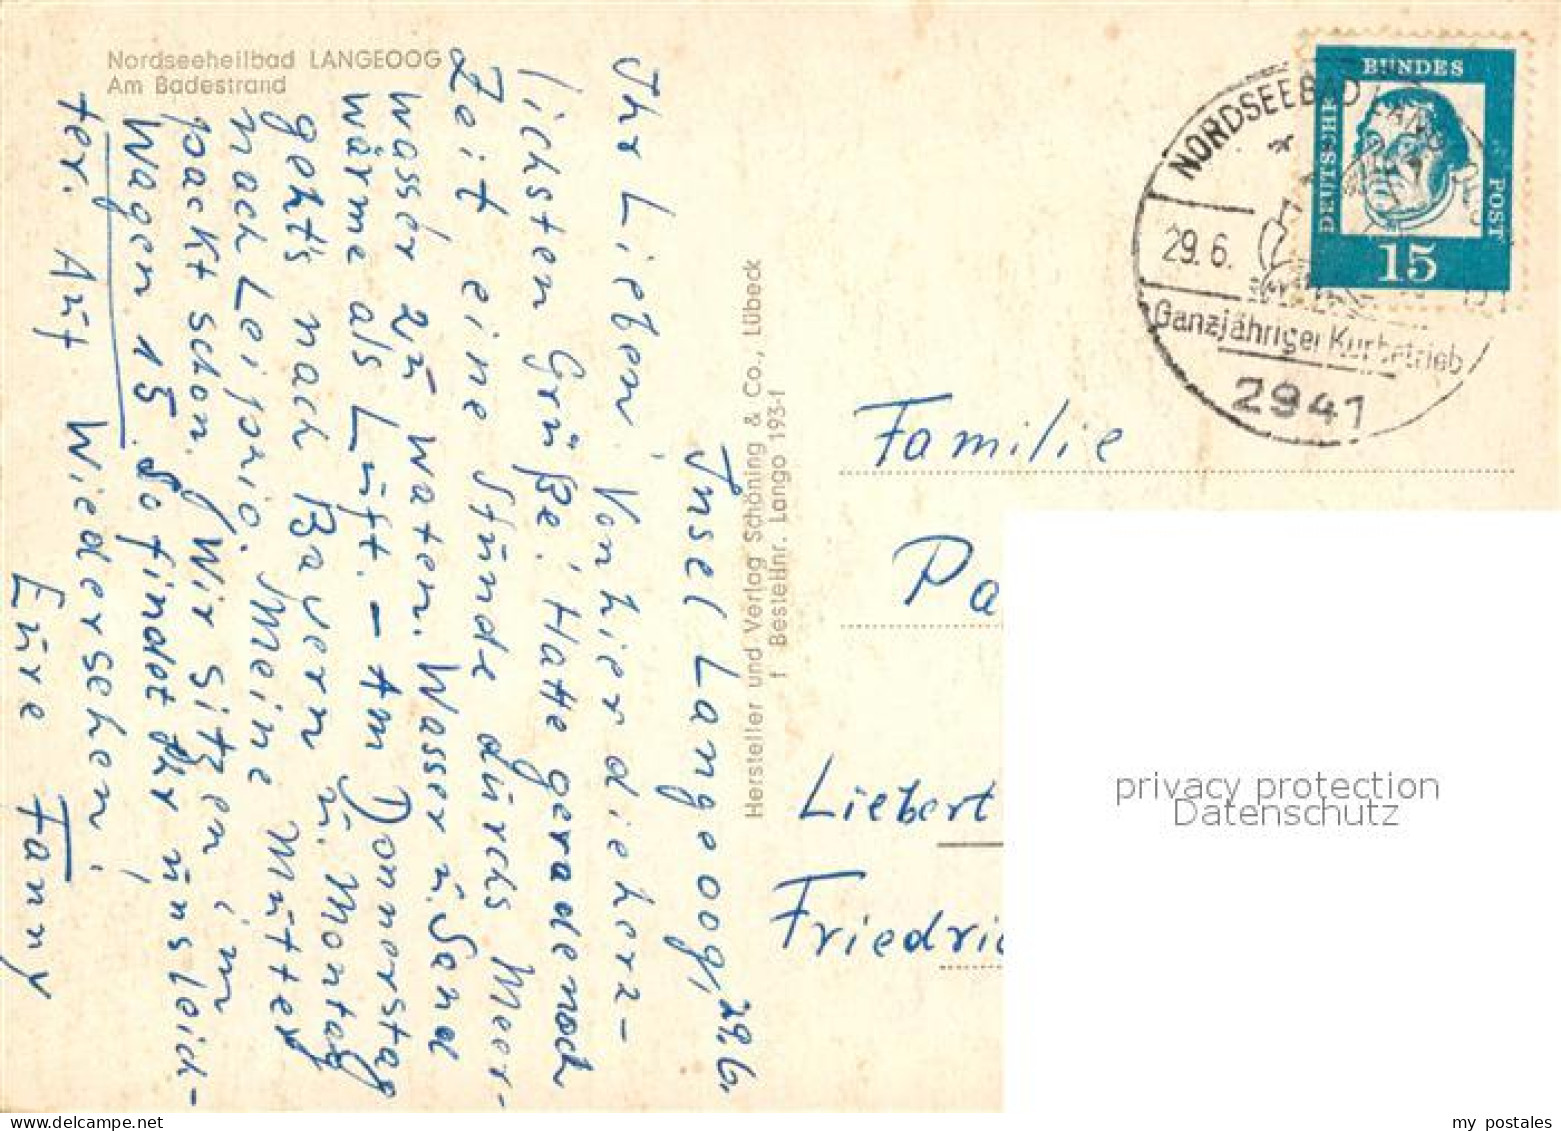 Nordseeheilbad LANGEOOG
Am Badestrand
Insel Langeoog, 29.6.
Ihr Lieben! Von hier die herz-
lichsten Grüße! Hatte gerade noch
Zeit eine Stunde durchs Meer-
wasser zu waten. Wasser u. Sand
wärme als Luft. - Am Donnerstag
geht's nach Bayern u. Montag
nach Leipzig. Meine Mutter
packt schon. Wir sitzen im
Wagen 15. So findet Ihr uns leich-
ter. Auf Wiedersehen!
Eure Fanny
Hersteller und Verlag Schöning & Co., Lübeck
f Bestellnr. Lango 193-f
NORDSEEBAD LANG
29. 6.
Ganzjähriger Kurbetrieb
2941
DEUTSCHE
BUNDES
POST
15
Familie
Pa
Liebert
Friedric
privacy protection
Datenschutz
my postales